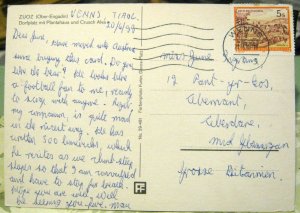 ZUOZ (Ober-Engadin)
Dorfplatz mit Plantahaus und Crusch Alva
VENNS, TIROL,
20/6/89
Dear June,
Have moved into Austria
since buying this card. Do you
like the bear? He looks like
a football fan to me, ready
to sing with anyone.
my companion, is quite mad
in the nicest way. He has
written 500 limericks, which
he recites as we climb steep
slopes so that I am
and have to stop for breath.
Hope you are well. Will
be seeing you
Miss June
12 Pant-yr-Eos,
Abernant,
Aberdare,
Mid Glamorgan
Grosse Britannien.
5S